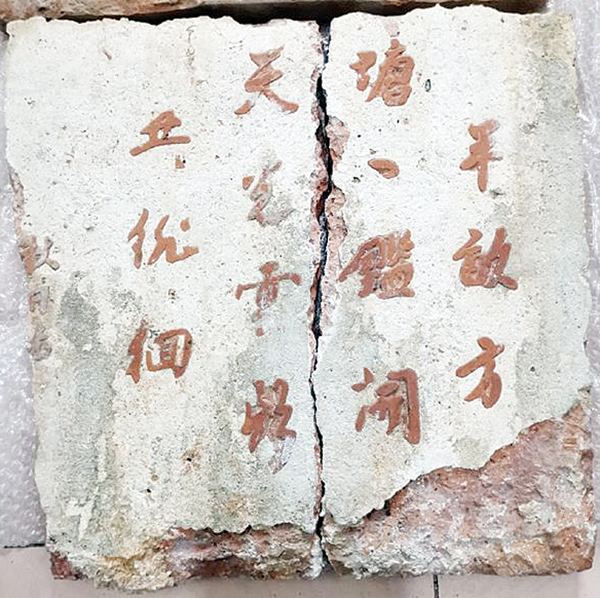 半畝方
塘一鑑開
天光雲影
共徘徊